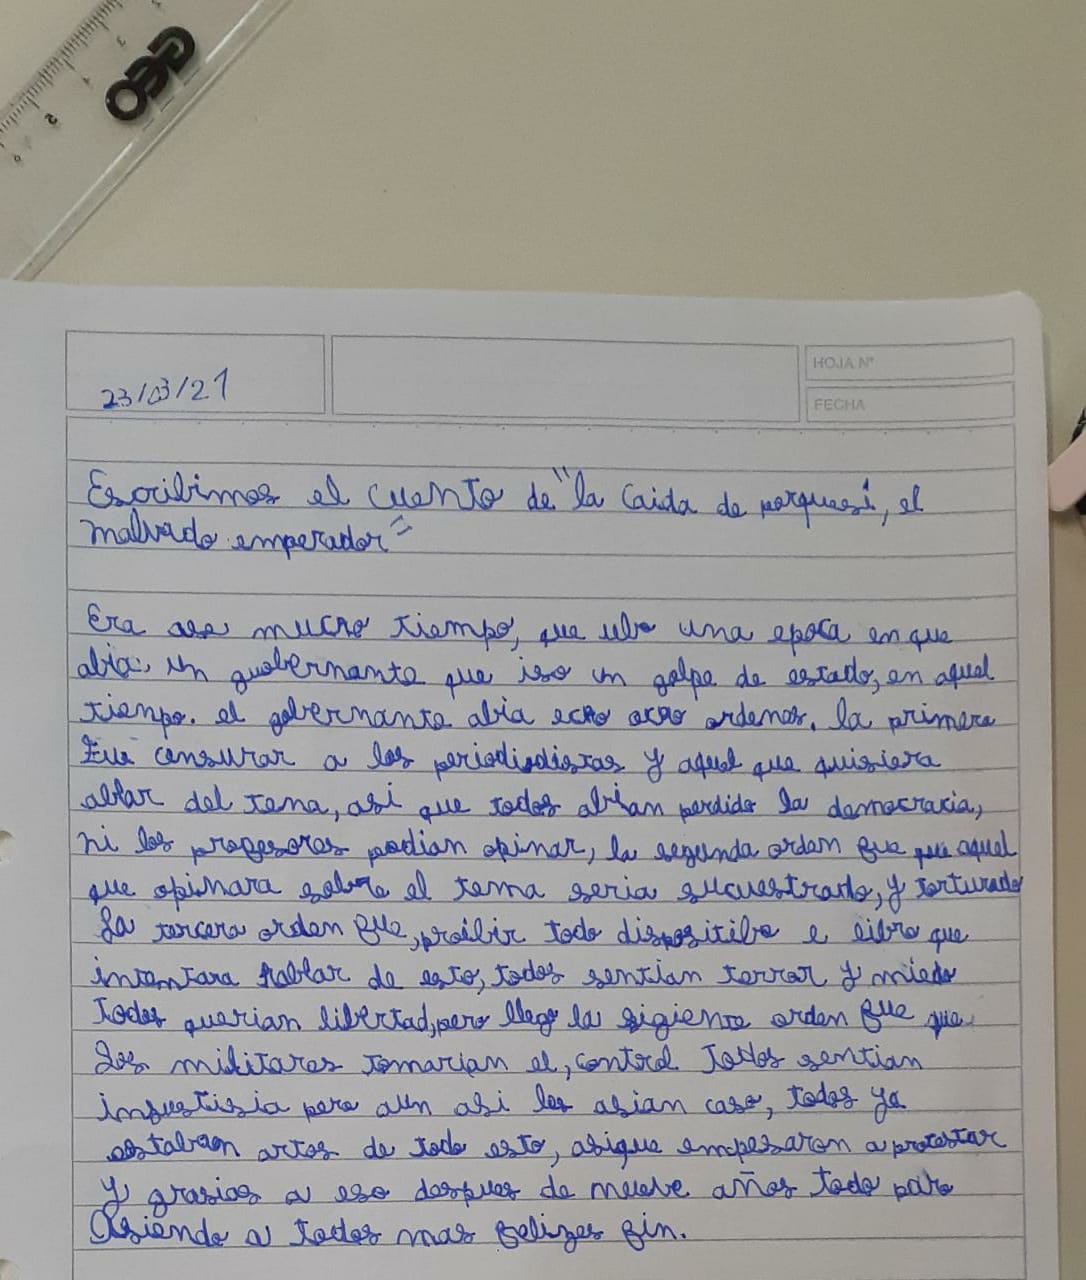 GEO
23/03/21
HOJA N°
FECHA
Escribimos el cuento de "la caida de porquesi, el
malvado emperador"
Era ase mucho tiempo, que ubo una epoca en que
abia un guobernante que iso un golpe de estado, en aquel
tiempo. el gobernante abia echo ocho ordenes. la primera
fue censurar a los periodisdistas y aquel que quisiera
ablar del tema, asi que todos abian perdido la democracia,
ni los profesores podian opinar, la segunda orden fue que aquel
que opinara sobre el tema seria sucuestrado, y torturado
La tercera orden fue, proibir todo dispositibo e libro que
intentara hablar de esto, todos sentian terror y miedo
Todos querian libertad, pero llego la sigiente orden fue que
Los militares tomarian el, control Todos sentian
injustisia pero aun asi les asian caso, todos ya
estaban artos de todo esto, asique empesaron a protestar
y grasias a eso despues de nueve años todo paro
Asiendo a todos mas felizes fin.